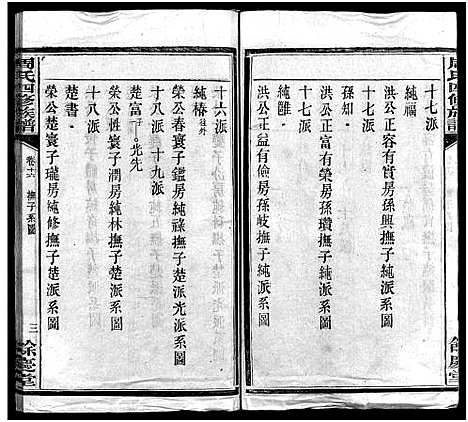 周氏四修族譜
十七派
純福
洪公正容有實房孫興撫子純派系圖
十七派
孫知
洪公正富有榮房孫瓚撫子純派系圖
十七派
純雖
洪公正益有儉房孫岐撫子純派系圖
餘慶堂
十六派
純椿 往外
榮公春寰子鑑房純祿撫子楚派光派系圖
十八派 十九派
楚富 光先
榮公性寰子潤房純林撫子楚派系圖
十八派
楚書
榮公楚寰子瓏房純修撫子楚派系圖
周氏四修族譜
卷十六 撫子系圖
三
餘慶堂